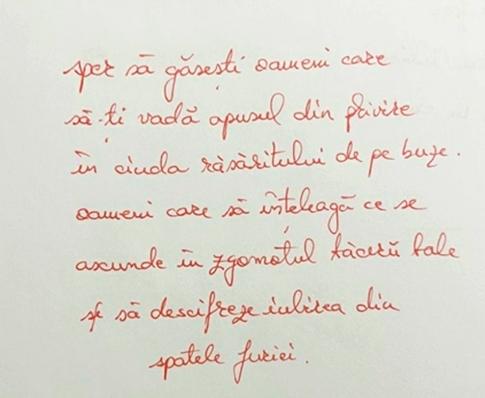 sper să găsești oameni care
să-ți vadă apusul din privire
în ciuda răsăritului de pe buze.
oameni care să înțeleagă ce se
ascunde în zgomotul tăcerii tale
și să descifreze iubirea din
spatele furiei.